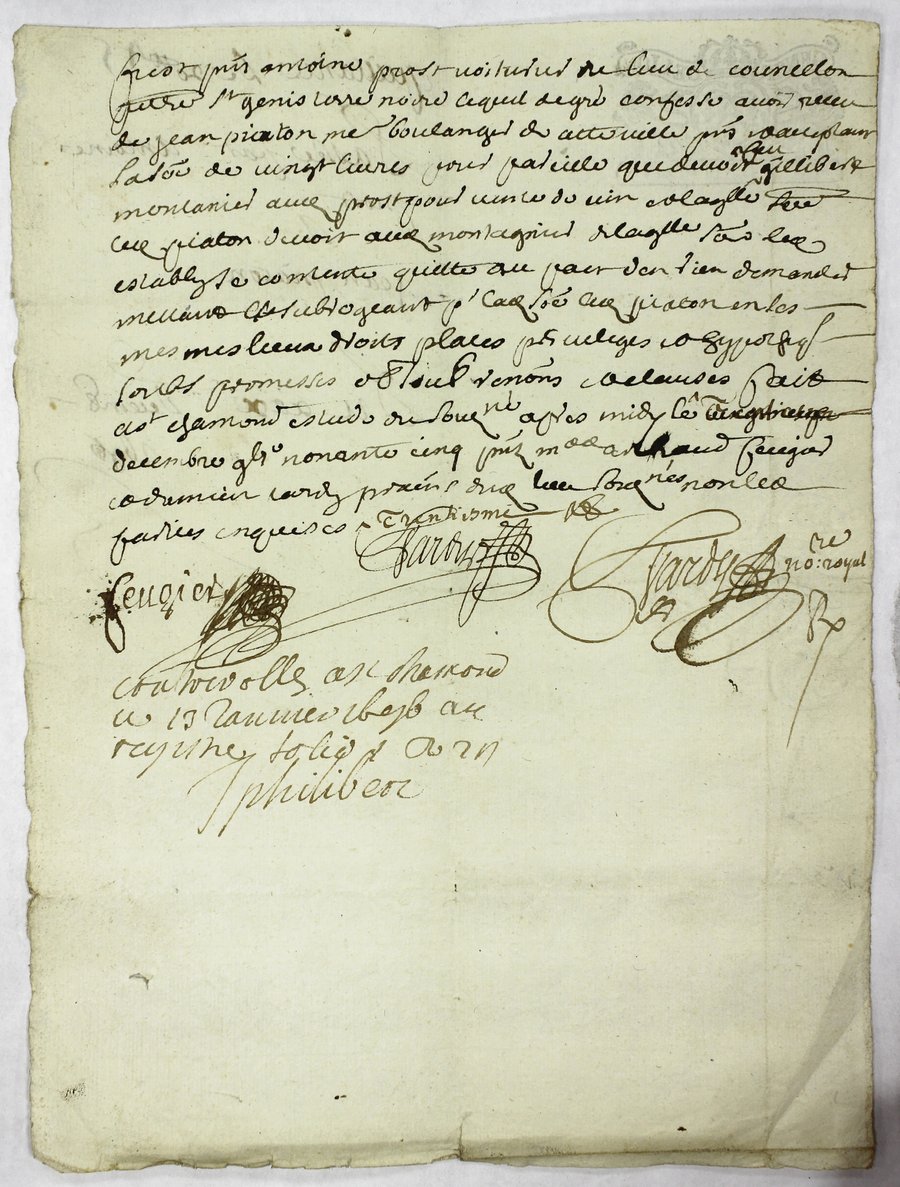 fust pnt antoine prost voiturier du lieu de councellon
St genis terre noire lequel de gré confesse avoir receu
de jean piaton me boulanger de cette ville pnt acceptant
la sôe de vingt livres pour pareille que devoit gillibert
montanier aud prost pour vente de vin de laqlle sôe
led piaton devoit aud montagnier de laqlle sôe led
estably se contente quitte au pact d'en rien demander
mettant et subrogeant pr lad sôe led piaton en ses
mesmes lieux droits places privileges et hypotheqs
soubs promesses obl soub renôns et clauses fait
a St chamond estude du soubne apres midy le
decembre gbre nonante cinq pnt me arthaud feugier
et damien tardy soubnés non led
parties enquises trentiesme
Tardy
Tardy no:re royal
feugier
Controrolle a St chamond
le 13 Janvier 1696 au
registre folio
philibert